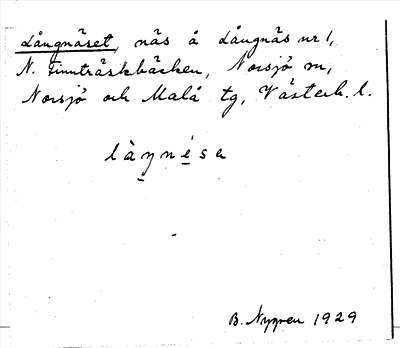 Långnäset, näs å Långnäs nr 1,
N. Finnträskbäcken, Norsjö sn,
Norsjö och Malå tg, Västerb. l.
B. Nygren 1929